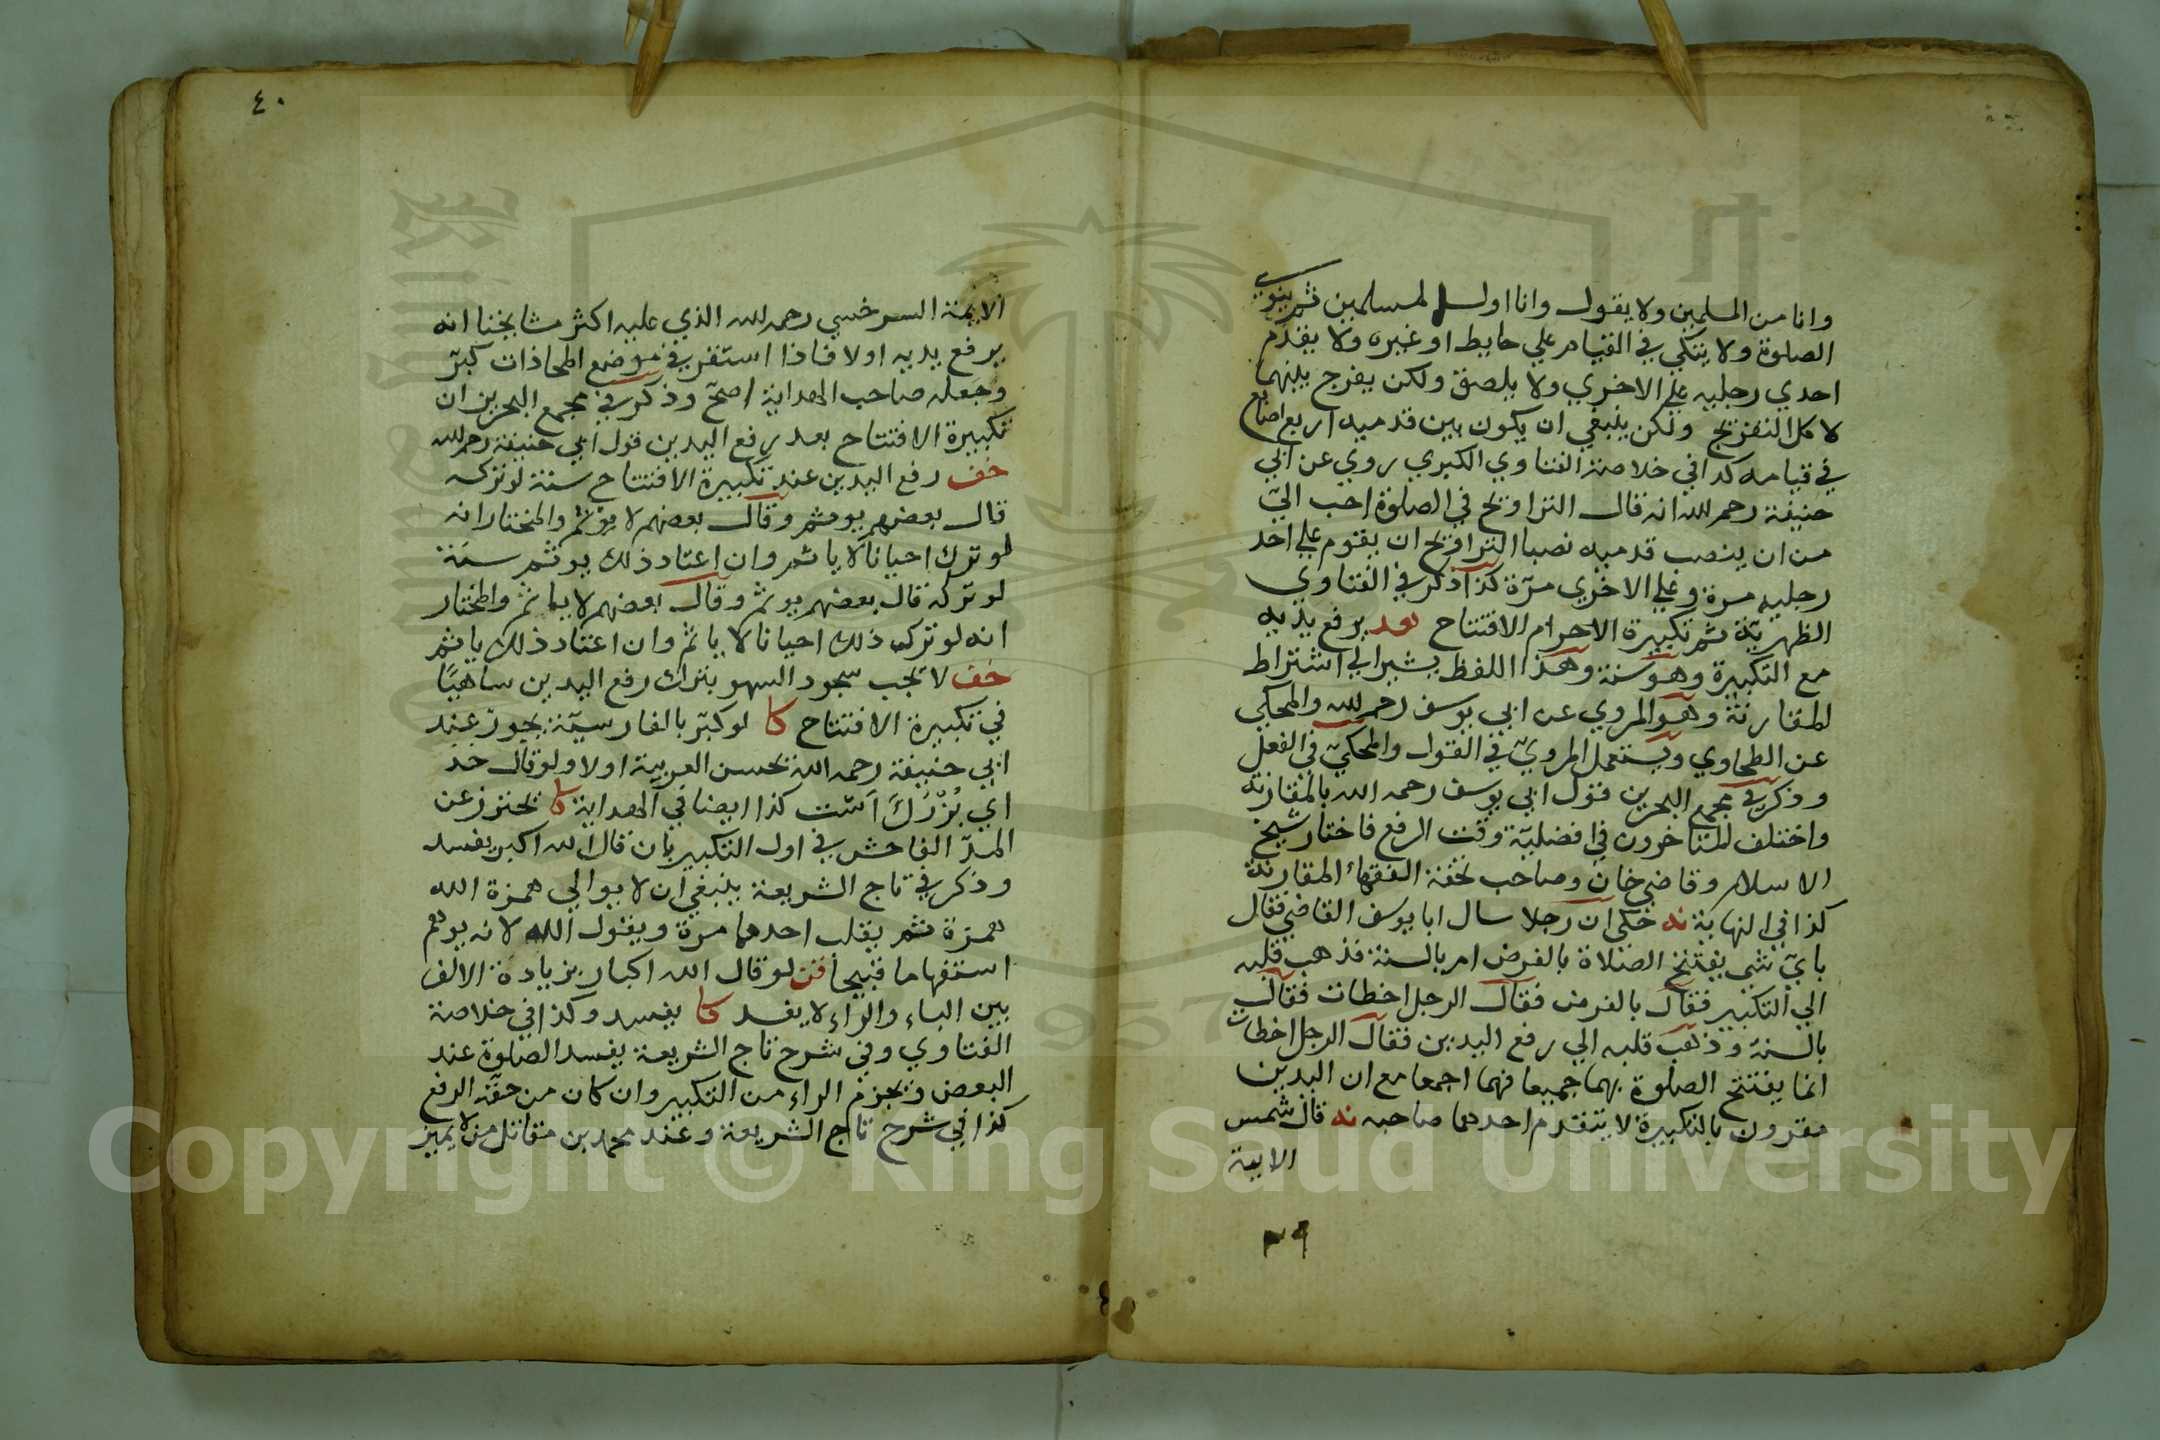 وانا من المسلمين ولا يقول وانا اول المسلمين ثم ينوي
الصلوة ولا يتكي في القيام علي حايط او غيره ولا يقدم
احدي رجليه علي الاخري ولا يلصق ولكن يفرج بينهما
لا كل التفريج ولكن ينبغي ان يكون بين قدميه اربع اصابع
في قيامه كذا في خلاصة الفتاوي الكبري روي عن ابي
حنيفة رحمه الله انه قال التراويح في الصلوة احب الي
من ان ينصب قدميه نصبا التراويح ان يقوم علي احد
رجليه مرة وعلي الاخري مرة كذا ذكر في الفتاوي
الظهرية ثم تكبيرة الاحرام الافتتاح هد يرفع يديه
مع التكبيرة وهو سنة وهذا اللفظ يشير الي اشتراط
المقارنة وهو المروي عن ابي يوسف رحمه الله والمحكي
عن الطحاوي ويستعمل المروي في القول والمحكي في الفعل
وذكر في مجمع البحرين قول ابي يوسف رحمه الله بالمقارنة
واختلف المتاخرون في افضلية وقت الرفع فاختار شيخ
الاسلام وقاضي خان وصاحب تحفة الفقهاء المقارنة
كذا في النهاية نه حكي ان رجلا سال ابا يوسف القاضي فقال
باي شي يفتتح الصلاة بالفرض ام بالسنة فذهب قلبه
الي التكبير فقال بالفرض فقال الرجل اخطات فقال
بالسنة وذهب قلبه الي رفع اليدين فقال الرجل اخطات
انما يفتتح الصلوة بهما جميعا فهما اجمعا مع ان اليدين
مقرون بالتكبيرة لا يتقدم احدهما صاحبه نه قال شمس
الايمة
٣٩
٤٠
الايمة السرخسي رحمه الله الذي عليه اكثر مشايخنا انه
يرفع يديه اولا فاذا استقر في موضع المحاذات كبر
وجعله صاحب الهداية اصح وذكر في مجمع البحرين ان
تكبيرة الافتتاح بعد رفع اليدين قول ابي حنيفة رحمه الله
خف رفع اليدين عند تكبيرة الافتتاح سنة لو تركه
قال بعضهم يوثم وقال بعضهم لا يوثم والمختار انه
لو ترك احيانا لا ياثم وان اعتاد ذلك يوثم سنة
لو تركه قال بعضهم يوثم وقال بعضهم لا ياثم والمختار
انه لو ترك ذلك احيانا لا ياثم وان اعتاد ذلك ياثم
خف لا تجب سجود السهو بترك رفع اليدين ساهيا
في تكبيرة الافتتاح كا لو كبر بالفارسية يجوز عند
ابي حنيفة رحمه الله يحسن العربية اولا ولو قال خد
اي بزرك است كذا ايضا في الهداية كا تحترز عن
المد الفاحش في اول التكبير بان قال الله اكبر يفسد
وذكر في تاج الشريعة ينبغي ان لا يوالي همزة الله
همزة ثم يقلب احدهما مرة ويقول الله لانه يوهم
استفهاما قبيحا فت لو قال الله اكبار بزيادة الالف
بين الباء والراء لا يفسد كا يفسد وكذا في خلاصة
الفتاوي وفي شرح تاج الشريعة يفسد الصلوة عند
البعض ويجزم الراء من التكبير وان كان من حقه الرفع
كذا في شرح تاج الشريعة وعند محمد بن مقاتل من لا يميز
Copyright © King Saud University
1957